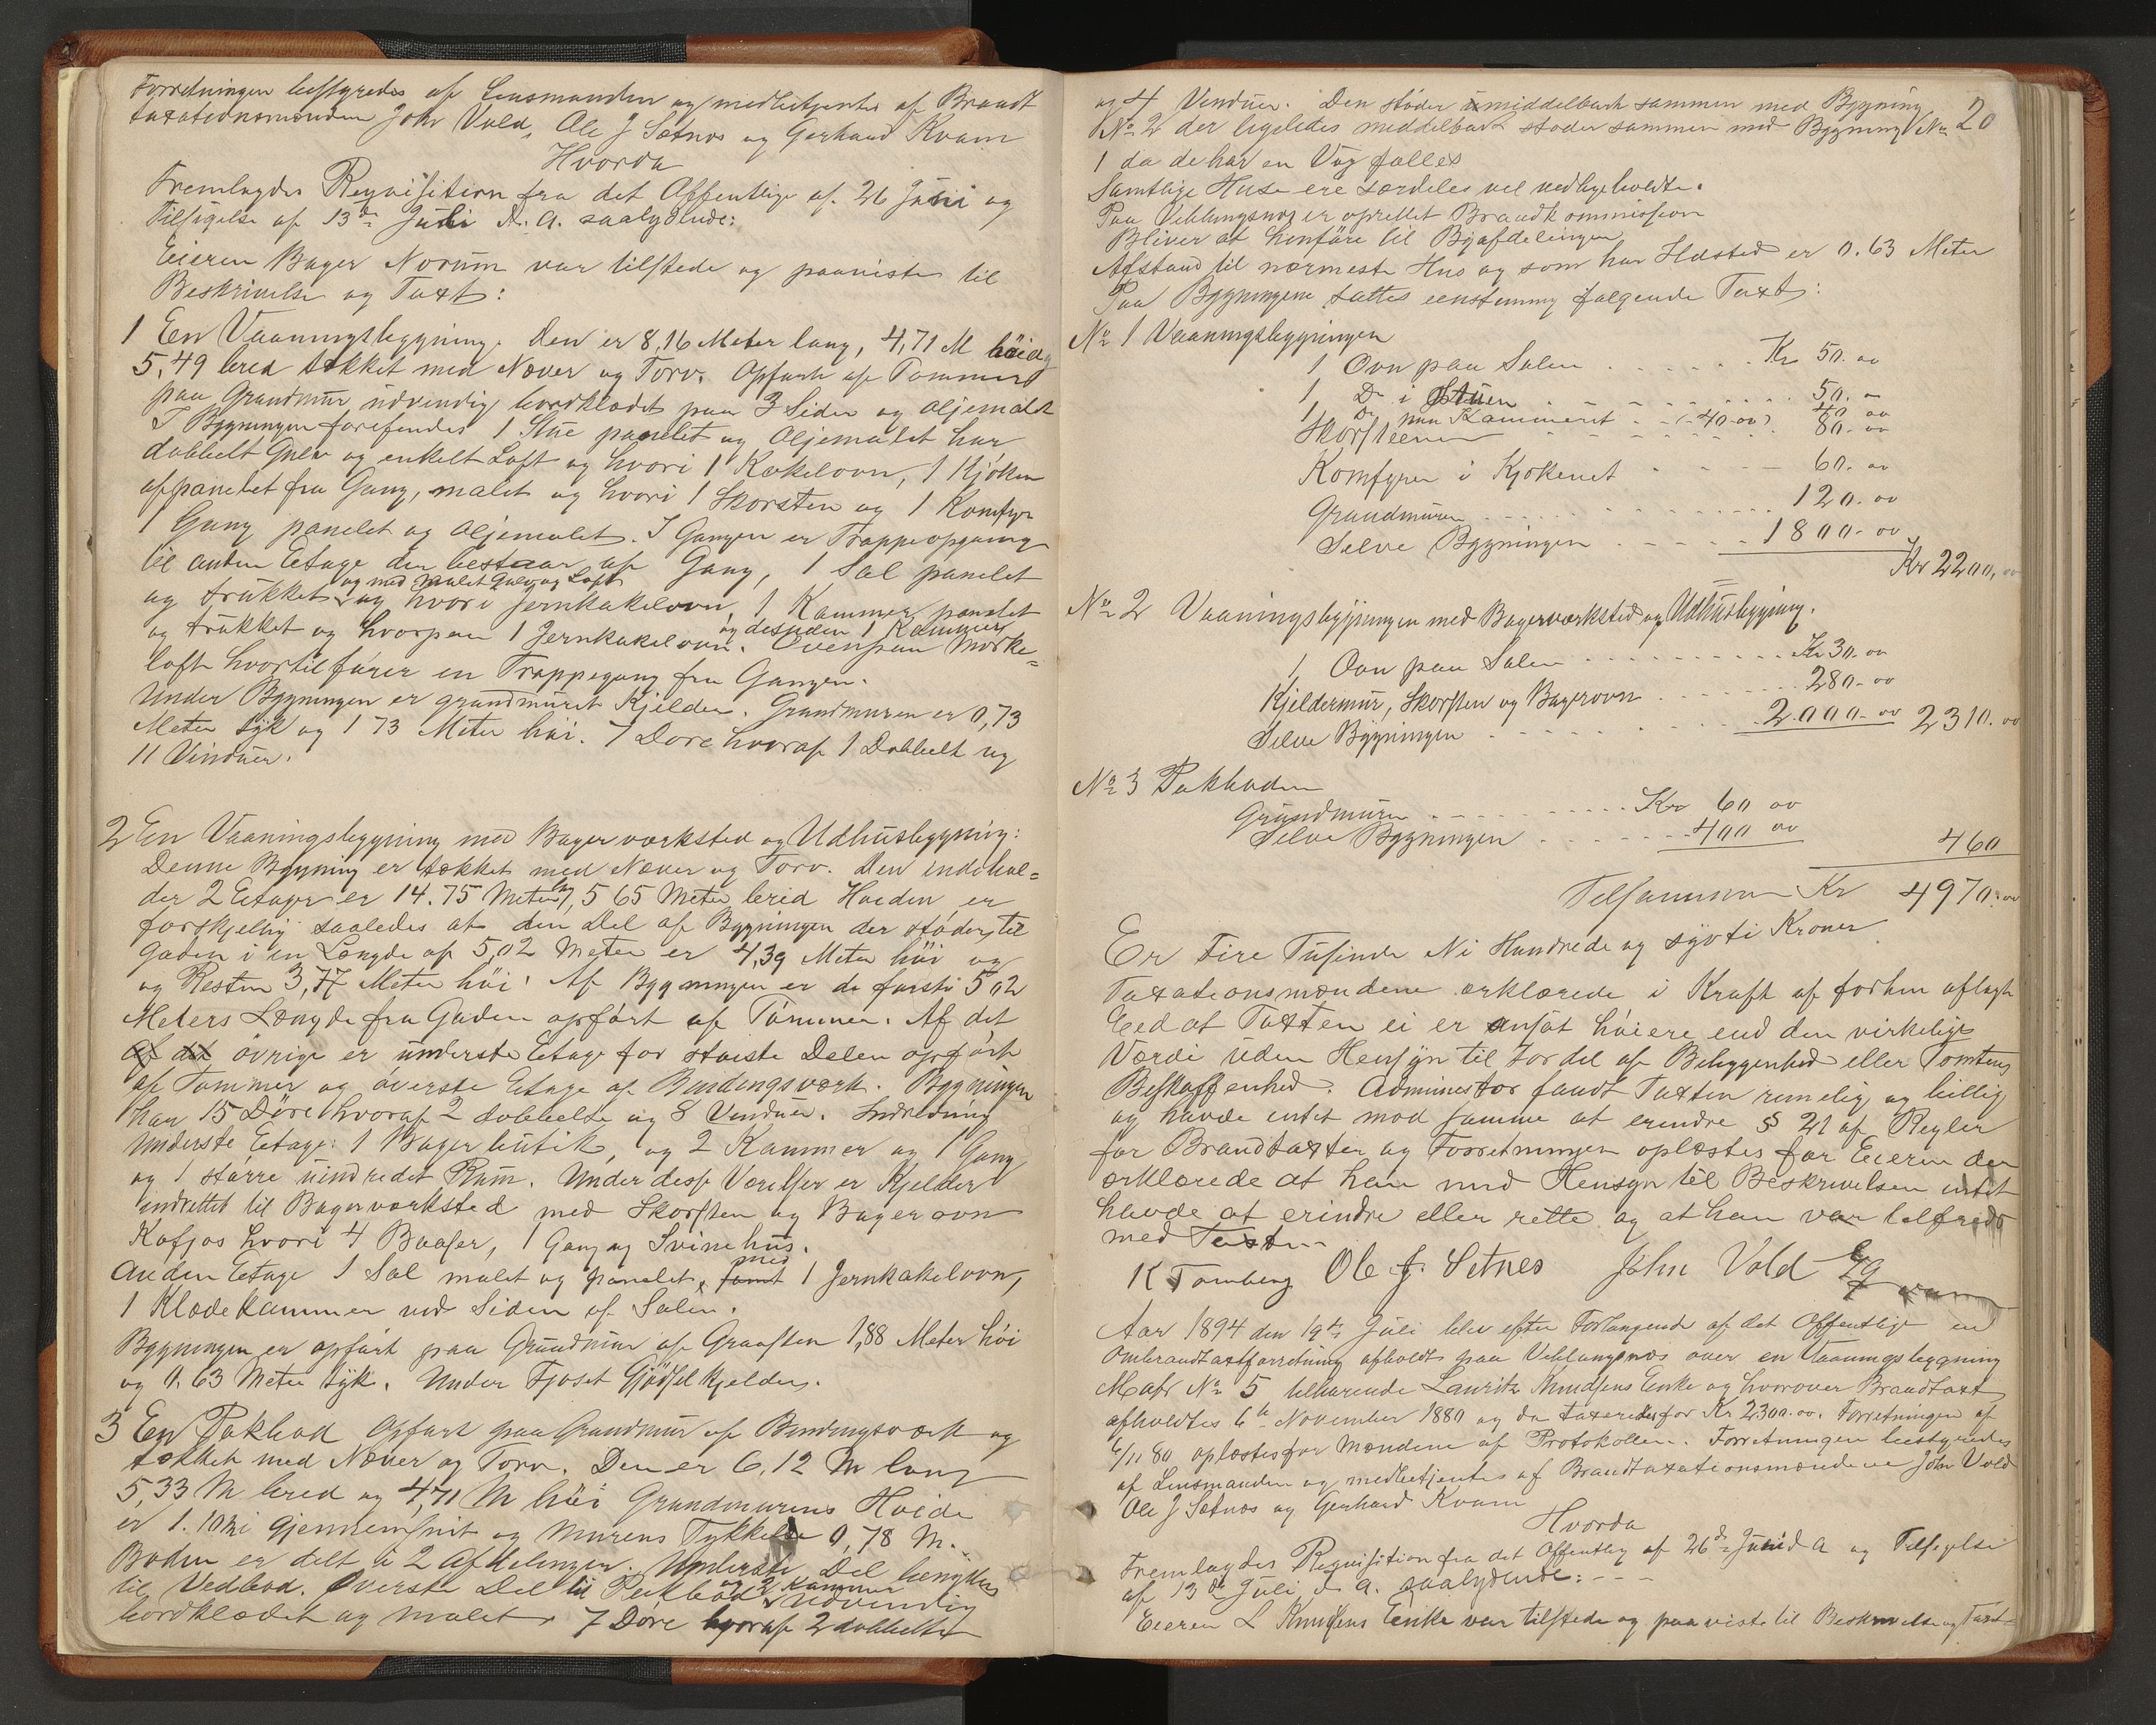 Forretningen bestyredes af Lensmanden og medbetjentes af Brandt
taxationsmænden John Vold, Ole J Sætnes og Gerhard Kvam
Hvorda
Fremlagdes Reqvisition fra det Offentlige af 26 Juni og
Tilsigelse af 13de Juli d. A. saalydende:
Eieren Bager Norum var tilstede og paaviste til
Beskrivelse og Taxt:
1 En Vaaningsbygning. Den er 8,16 Meter lang, 4,71 M høi og
5,49 bred tækket med Næver og Torv. Opført af Tømmer
paa Grundmur udvendig bordklædt paa 3 Sider og Oljemalt
I Bygningen forefindes 1 Stue panelet og Oljemalet har
dobbelt Gulv og enkelt Loft og hvori 1 Kakelovn, 1 Kjøken
afpanelet fra Gang, malet og hvori 1 Skorsten og 1 Komfyr
1 Gang panelet og Oljemalet. I Gangen er Trappeopgang
til anden Etage der bestaar af Gang, 1 Sal panelet
og med malet Gulv og Loft
og trukket og hvori Jernkakelovn, 1 Kammer panelet
og desuden 1 Kammer
og trukket og hvorpaa 1 Jernkakelovn. Ovenpaa Mørke=
loft hvortil fører en Trappegang fra Gangen.
Under Bygningen er grundmuret Kjelder. Grundmuren er 0,73
Meter tyk og 1 73 Meter høi. 7 Døre hvoraf 1 Dobbelt og
11 Vinduer.
2 En Vaaningsbygning med Bagerværksted og Udhusbygning:
Denne Bygning er tækket med Næver og Torv. Den indehol=
der 2 Etager er 14.75 Meter lng, 5 65 Meter bred Høiden er
forskjellig saaledes at den Del af Bygningen der støder til
Gaden i en Længde af 5,02 Meter er 4,39 Meter høi og
og Resten 3,77 Meter høi. Af Bygningen er de første 5 02
Meters Længde fra Gaden opført af Tømmer. Af det
af det øvrige er underste Etage for største Delen opført
af Tømmer og øverste Etage af Bindingsværk. Bygningen
har 15 Døre hvoraf 2 dobbelte og 8 Vinduer. Indredning
Underste Etage: 1 Bagerbutik, og 2 Kammer og 1 Gang
og 1 større uindredet Rum. Under desse Værelser er Kjelder
indrettet til Bagerværksted med Skorsten og Bagerovn
Kofjøs hvori 4 Baaser, 1 Gang og Svinehus.
med
Anden Etage 1 Sal malet og panelet, samt 1 Jernkakelovn,
1 Klædekammer ved Siden af Salen.
Bygningen er opført paa Grundmur af Graasten 1,88 Meter høi
og 0.63 Meter tyk. Under Fjøset Gjødselkjelder.
3 En Pakbod Opført paa Grundmur af Bindingsværk og
tækket med Næver og Torv. Den er 6,12 M lang
5,33 M bred og 4,71 M høi Grundmurens Høide
er 1.10 M i Gjennemsnit og Murens Tykkelse 0,78 M.
Boden er delt i 2 Afdelinger. Underste Del benyttes
og 2 Kammer
til Vedbod. Øverste Del til Pakbod Udvendig
bordklædet og malet. 7 Døre hvoraf 2 dobbelte
20
og 4 Vinduer. Den støder umiddelbart sammen med Bygning
No 2 der ligeledes middelbart støder sammen med Bygning No
1 da de har en Væg fælles
Samtlige Huse ere særdeles vel vedligeholdte.
Paa Veblungsnæs er oprettet Brandkommission
Bliver at henføre til Byafdelingen
Afstand til nærmeste Hus og som har Ildsted er 0.63 Meter
Paa Bygningene sattes eenstemmig følgende Taxt:
No 1 Vaaningsbygningen
1 Ovn paa Salen . . . . . . Kr 50. 00
1 Do i Stuen . . . . . . . 50. 00
1 Do paa Kammeret . . (40 00) 40 00
Skorstenen . . . . . . . 80. 00
Komfyren i Kjøkenet . . . 60. 00
Grundmuren . . . . . . . 120. 00
Selve Bygningen . . . . . 1800. 00
Kr 2200, 00
No 2 Vaaningsbygningen med Bagerværksted og Udhusbygning.
1 Ovn paa Salen . . . . . . . Kr 30. 00
Kjeldermur, Skorsten og Bagerovn . . . . 280. 00
Selve Bygningen . . . . . 2.000. 00 2310. 00
No 3 Pakboden
Grundmuren . . . . . . Kr 60 00
Selve Bygningen . . . . . 400 00
460
Tilsammen Kr 4970. 00
Er Fire Tusinde Ni Hundrede og sytti Kroner
Taxationsmændene erklærede i Kraft af forhen aflagt
Eed at Taxten ei er ansat høiere end den virkelige
Værdi uden Hensyn til Fordel af Beliggenhed eller Tomtens
Beskaffenhed. Administor fandt Taxten rimelig og billig
og havde intet mod samme at erindre § 21 af Regler
for Brandtaxter og Forretningen oplæstes for Eieren der
erklærede at han med Hensyn til Beskrivelsen intet
havde at erindre eller rette og at han var tilfreds
med Taxten
K Tomberg Ole J. Setnes John Vold G Kvam
Aar 1894 den 19de Juli blev efter Forlangende af det Offentlige en
Ombrandtaxtforretning afholdt paa Veblungsnæs over en Vaaningsbygning
Matr No 5 tilhørende Lauritz Knudsens Enke og hvorover Brandtaxt
afholdtes 6te November 1880 og da taxeredes for Kr 2300.00. Forretningen af
6/11 80 oplæstes for Mændene af Protokollen. Forretningen bestyredes
af Lensmanden og medbetjentes af Brandtaxationsmændene John Vold
Ole J Sætnes og Gerhard Kvam
Hvorda
Fremlagdes Reqvisition fra det Offentlig af 26de Juni d A og Tilsigelse
af 13de Juli d. A. saalydende: - - -
Eieren L Knudsens Enke var tilstede og paaviste til Beskrivelse og Taxt=